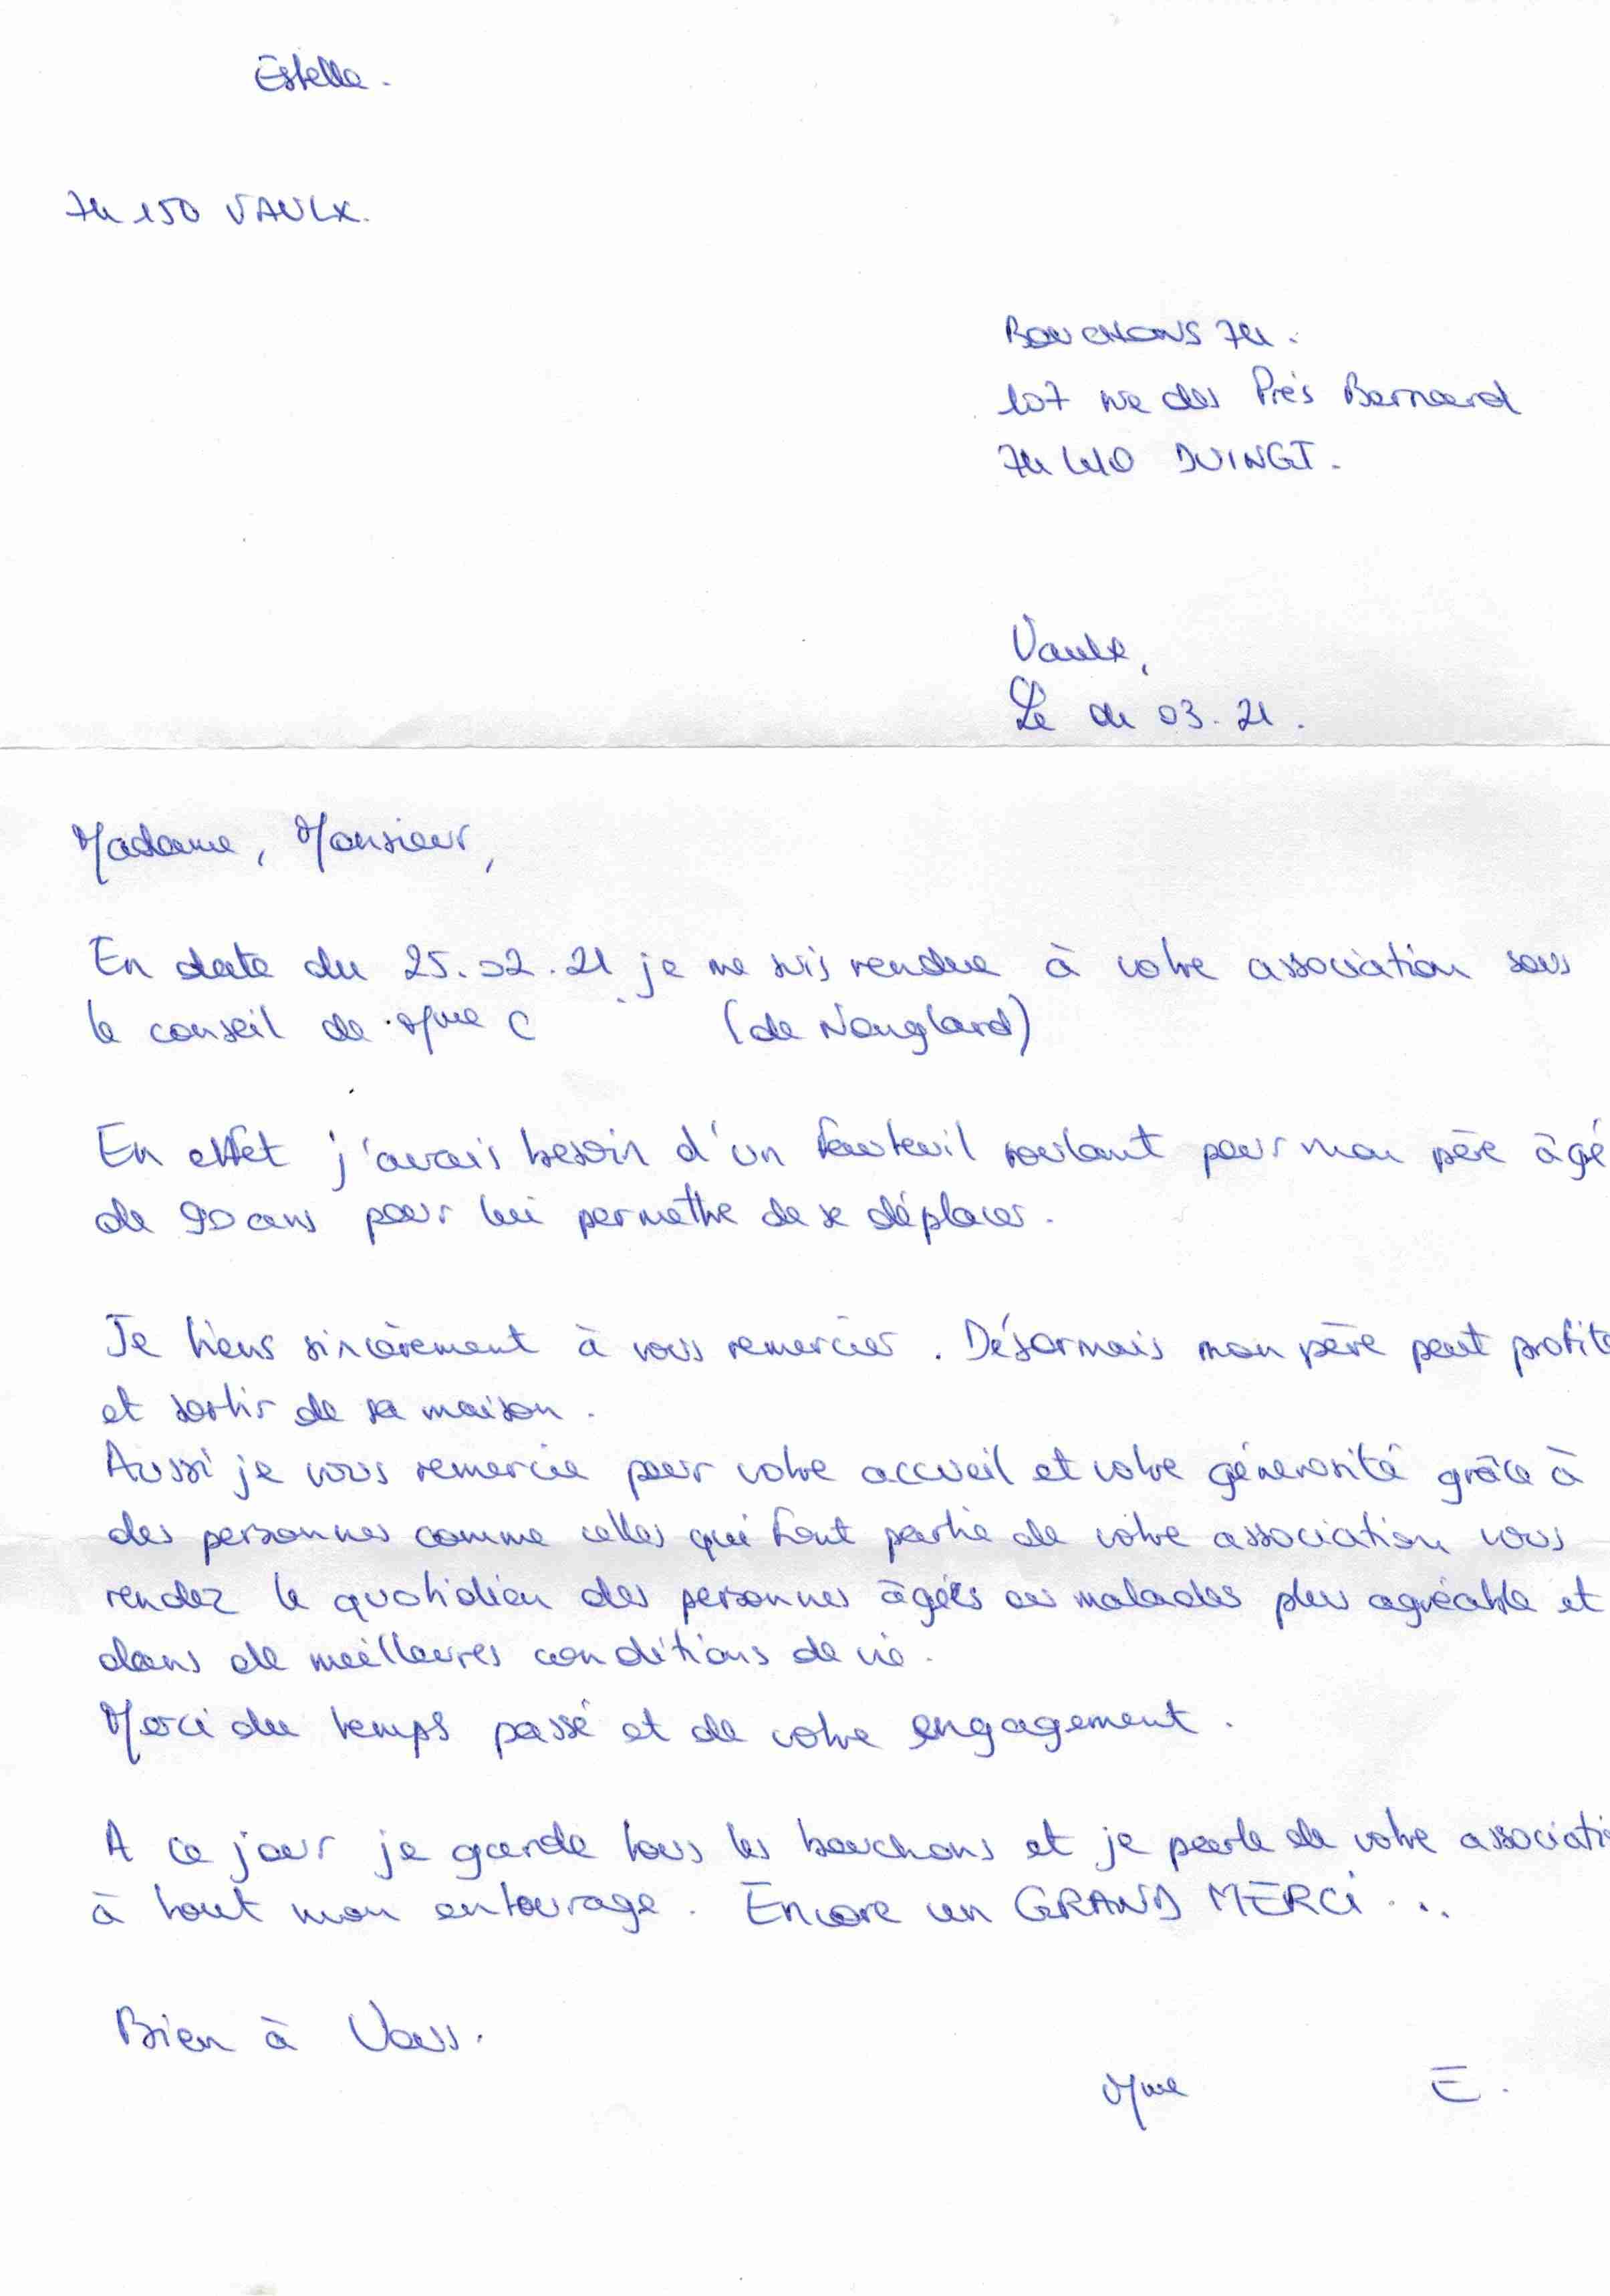 Estelle.
74 150 VAULX.
BOUCHONS 74.
107 rue des Prés Bernard
74 410 DUINGT.
Vaulx,
Le 04 03. 21.
Madame, Monsieur,
En date du 25.02.21 je me suis rendue à votre association sous
le conseil de Mme C (de Nonglard)
En effet j'avais besoin d'un fauteuil roulant pour mon père âgé
de 90 ans pour lui permettre de se déplacer.
Je tiens sincèrement à vous remercier. Désormais mon père peut profite
et sortir de sa maison.
Aussi je vous remercie pour votre accueil et votre générosité grâce à
des personnes comme celles qui font partie de votre association vous
rendez le quotidien des personnes âgées ou malades plus agréable et
dans de meilleures conditions de vie.
Merci du temps passé et de votre engagement.
A ce jour je garde tous les bouchons et je parle de votre associati
à tout mon entourage. Encore un GRAND MERCI...
Bien à Vous.
Mme E.